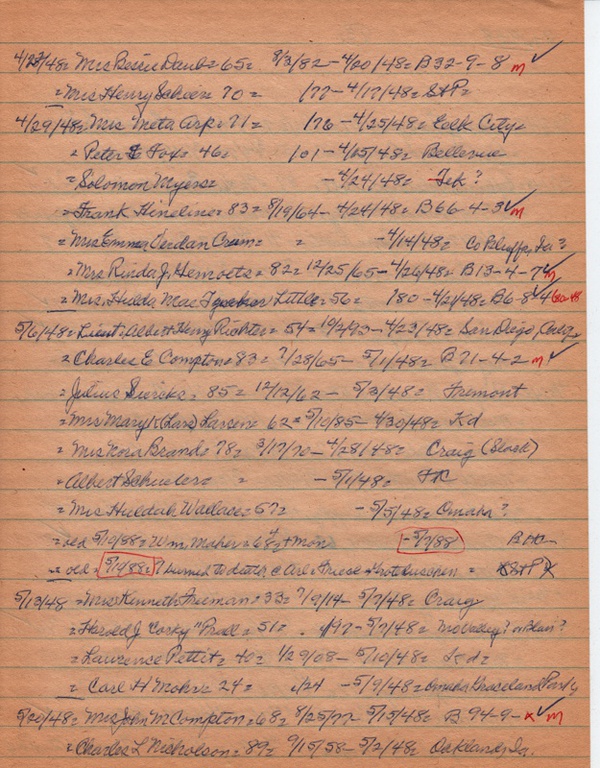 4/22/48= Mrs Bessie Daub= 65= 8/3/82-4/20/48= B32-9-8 m
= Mrs Henry Scheer= 70= /77-4/17/48= StP=
4/29/48= Mrs Meta Arp= 71= /76-4/25/48= Eolk City=
= Peter E Fox= 46= /01-4/25/48= Bellevue
= Solomon Myers= -4/24/48= Tek?
= Frank Hineline= 83= 8/19/64-4/24/48= B66-4-3 m
= Mrs Emma Verdan Crum= = -4/14/48= Co Bluffs, Ia?
= Mrs Rinda J. Hemroets= 82= 12/25/65-4/26/48= B13-4-7 m
= Mrs. Hulda Mae Little= 56= /80-4/21/48= B6-8-4
5/6/48= Lieut. Albert Henry Richter= 54= -4/23/48= San Diego, Calif=
= Charles E Compton= 83= 7/28/65-5/1/48= B71-4-2 m
= Julius Siercks= 85= 12/12/62-5/3/48= Fremont
= Mrs Mary K (Lars) Larsen= 62= 5/10/85-4/30/48= Kd
= Mrs Nora Brand= 78= 3/17/70-4/28/48= Craig
= Albert Schueler= = -5/1/48=
= Mrs Huldah Wallace= 57= -5/5/48= Omaha?
= old 5/19/88= Wm, Maher= 68 -5/7/88
= old= 5/19/88= ? burned to death= c Carl= Friese =
5/13/48= Mrs Kenneth Freeman= 33= 7/9/14-5/7/48= Craig
= Harold J "Corky" Prall= 51= /97-5/7/48= Mo Valley? or Blair?
= Laurence Pettit= 40= 1/29/08-5/10/48= Kd=
= Carl H Mohr= 24= /24 -5/9/48= Omaha Graceland Park
5/20/48= Mrs John M Compton= 68= 8/25/77-5/15/48= B 94-9-x m
= Charles L Nicholson= 89= 9/15/58-5/2/48= Oakland, Ia.